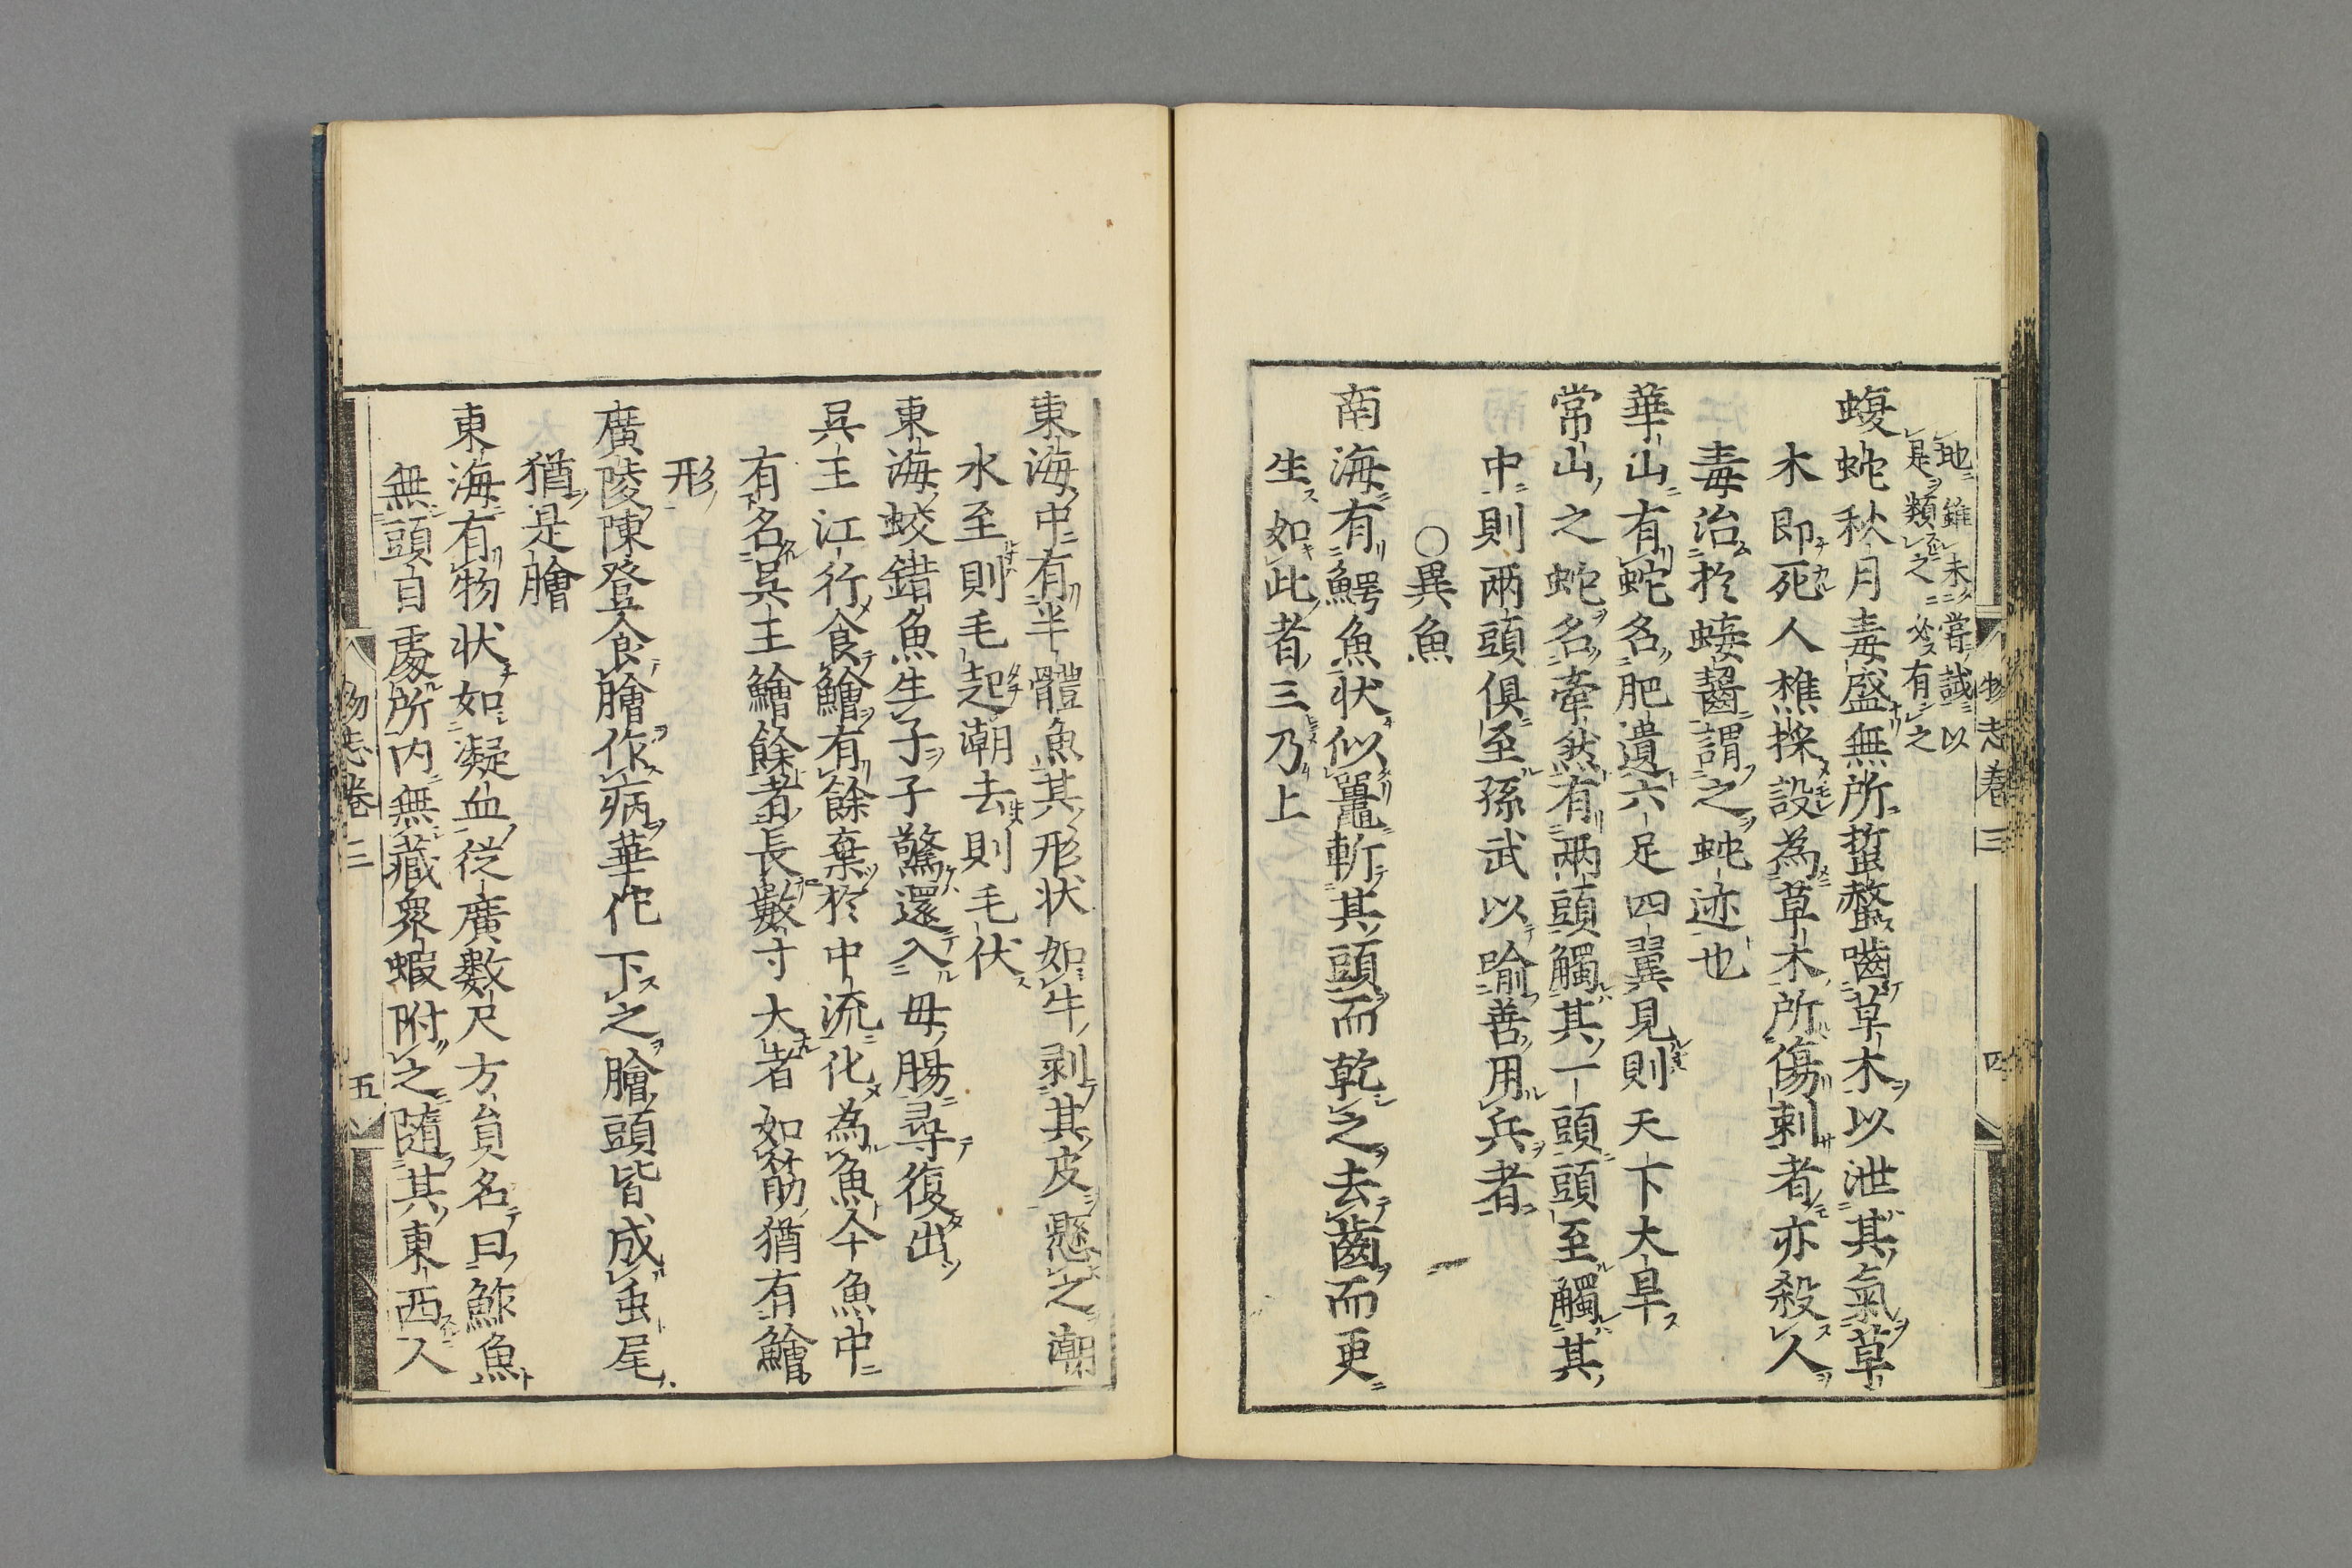 物志卷三
四
地雖未嘗試以
是類之必有之
蝮蛇秋月毒盛無所蜇螫嚙草木以泄其氣草
木即死人樵採設為草木所傷刺者亦殺人
毒治於蝮齧謂之蛇迹也
華山有蛇名肥遺六足四翼見則天下大旱
常山之蛇名率然有兩頭觸其一頭頭至觸其
中則兩頭俱至孫武以喻善用兵者
○異魚
南海有鰐魚狀似鼉斬其頭而乾之去齒而更
生如此者三乃上
東海中有半體魚其形状如牛剥其皮懸之潮
水至則毛起潮去則毛伏
東海蛟錯魚生子子驚還入母腸尋復出
吳王江行食鱠有餘棄於中流化為魚今魚中
有名吳王鱠餘者長數寸大者如筯猶有鱠
形
廣陵陳登食膾作病華佗下之膾頭皆成虫尾
猶是膾
東海有物状如凝血從廣數尺方員名曰鮓魚
無頭目處所内無藏衆蝦附之隨其東西人
物志卷三
五